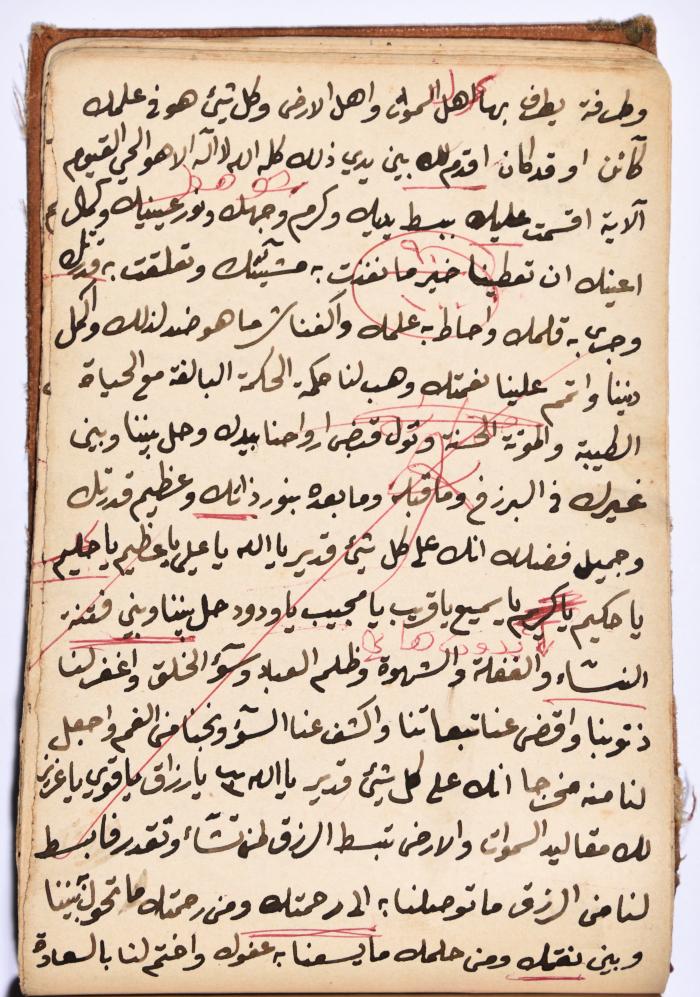 وطرفة يطرف بها اهل السموات واهل الارض وكل شئ هو في علمك
كآئن او قد كان اقدم لك بين يدي ذلك كله الله لا اله الا هو الحي القيوم
آلاية اقسمت عليك ببسط يديك وكرم وجهك ونور عينيك وكمال
اعينك ان تعطينا خير ما نفذت به مشيئتك وتعلقت به قدرتك
وجرى به قلمك واحاط به علمك واكفنا شر ما هو ضد لذلك واكمل
ديننا واتمم علينا نعمتك وهب لنا حكمة الحكمة البالغة مع الحياة
الطيبة والموتة الحسنة وتول قبض ارواحنا بيدك وحل بيننا وبين
غيرك في البرزخ وما قبله وما بعده بنور ذاتك وعظيم قدرتك
وجميل فضلك انك على كل شئ قدير يا الله يا علي يا عظيم يا حليم
يا حكيم يا كريم يا سميع يا قريب يا مجيب يا ودود حل بيننا وبين فتنة
النسآء والغفلة والشهوة وظلم العباد وسوء الخلق واغفر لنا
ذنوبنا واقض عنا تبعاتنا واكشف عنا السوء ونجنا من الغم واجعل
لنا منه مخرجا انك على كل شئ قدير يا الله ٣ يا رزاق يا قوي يا عزيز
لك مقاليد السموات والارض تبسط الرزق لمن تشآء وتقدر فابسط
لنا من الرزق ما توصلنا به الى رحمتك ومن رحمتك ما تحول بيننا
وبين نقمك ومن حلمك ما يسعنا به عفوك واختم لنا بالسعادة